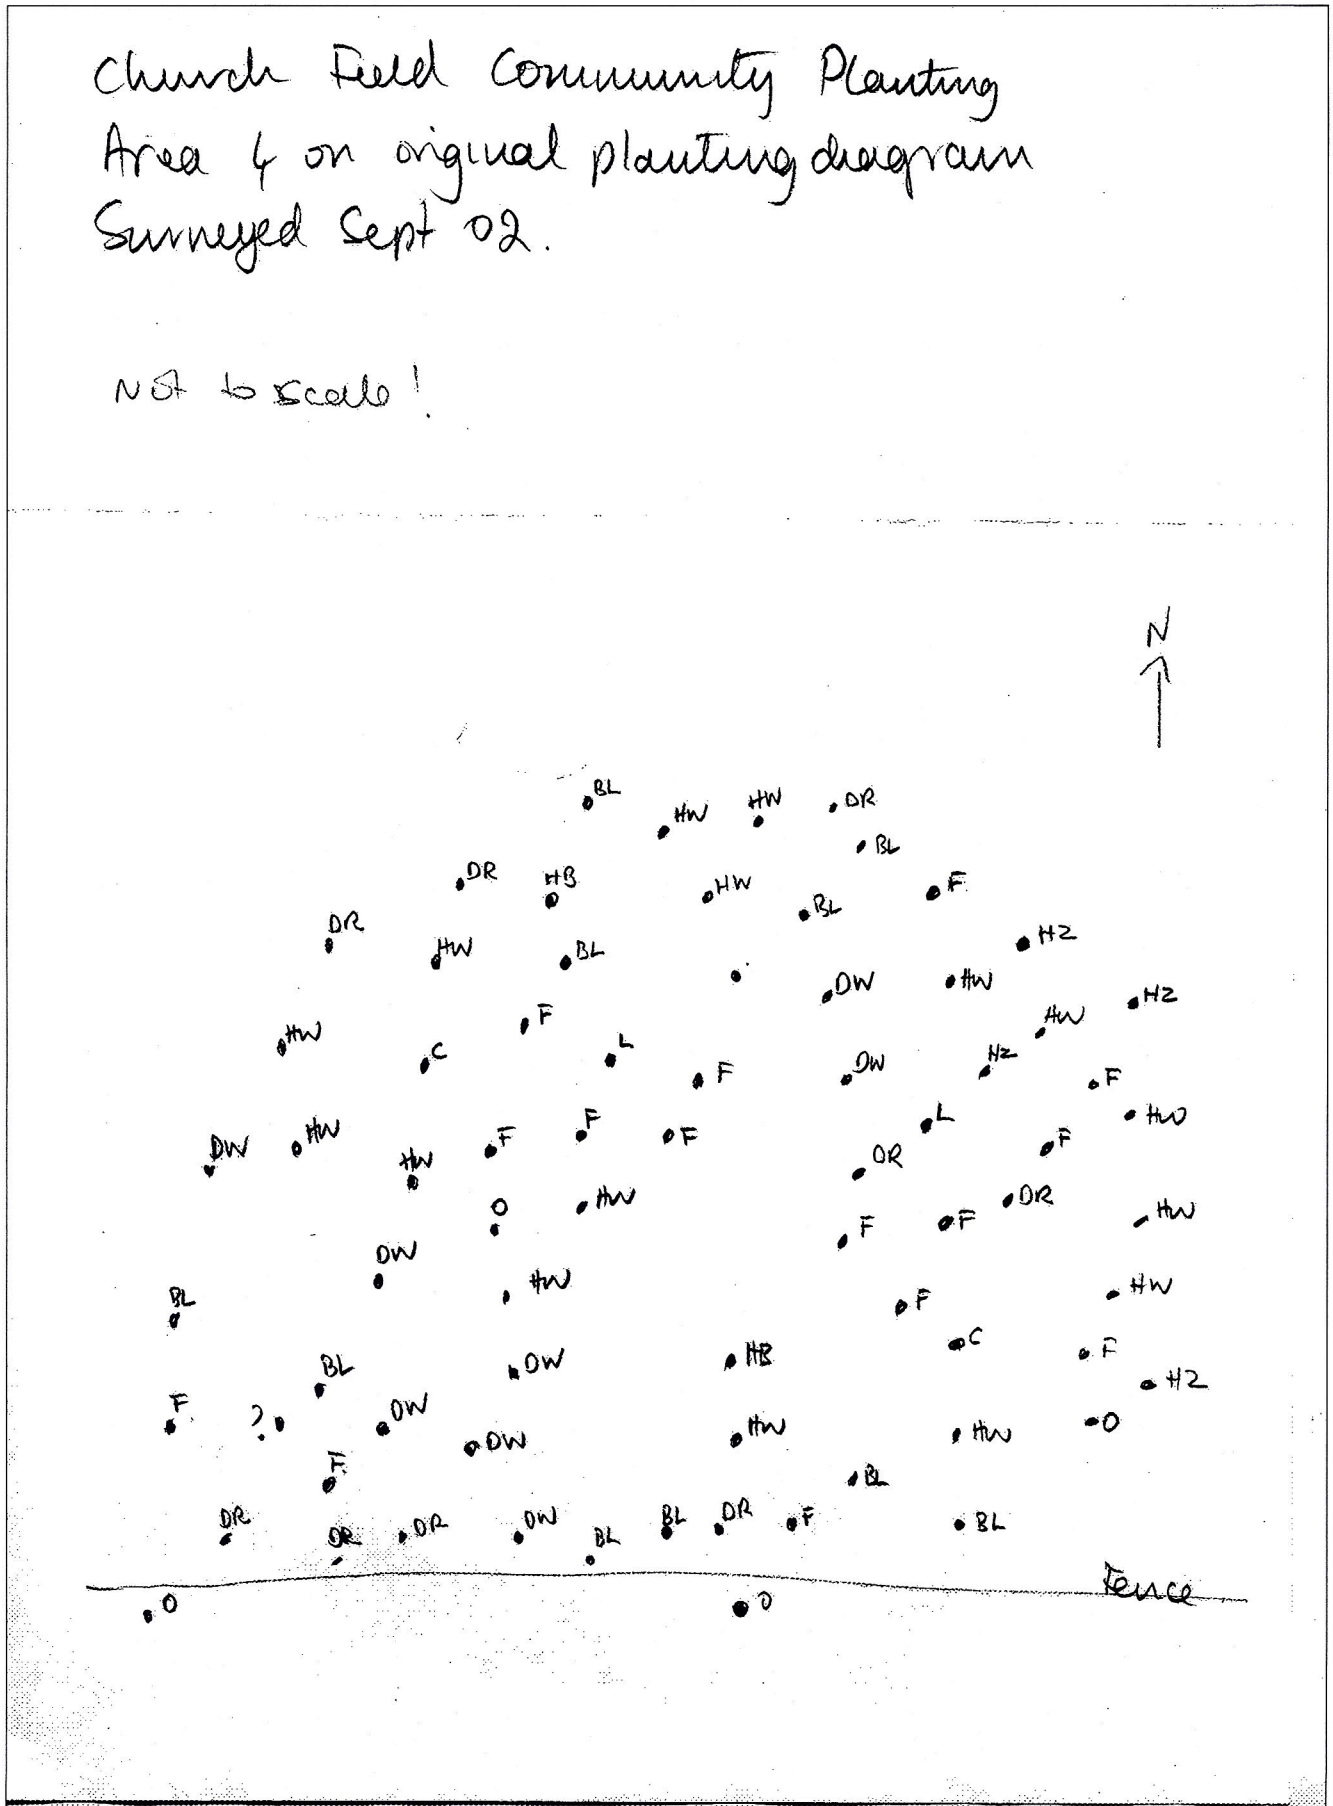 Church Field Community Planting
Area 4 on original planting diagram
Surveyed Sept 02.
Not to scale!
N
BL
HW HW DR
BL
DR HB HW BL F
DR HW BL HZ
DW HW HZ
HW C F L F DW HZ HW F
HW
DW HW HW F F F DR L F
O HW F F DR HW
DW HW HW
BL F C F
BL DW HB HZ
F ? DW DW HW HW O
F BL
DR DR DR DW BL BL DR F BL
Fence
O O